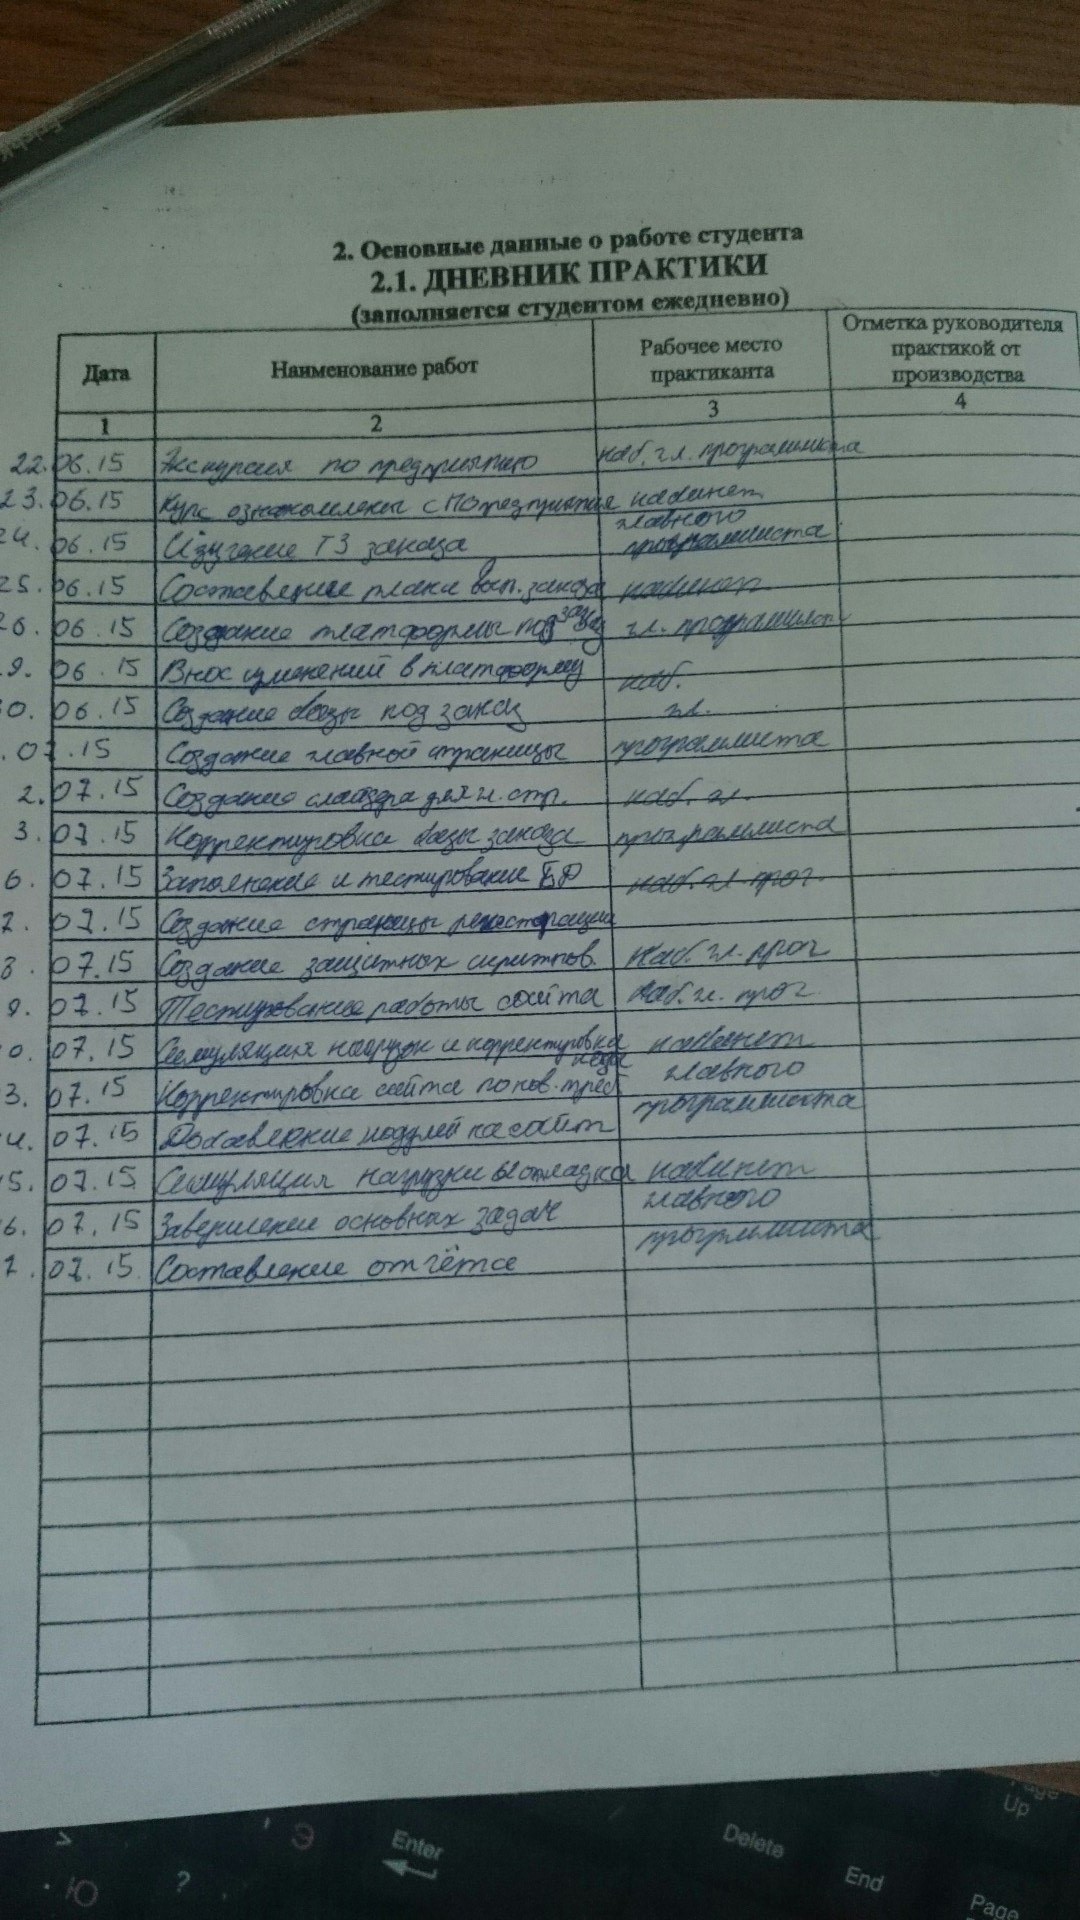 2. Основные данные о работе студента
2.1. ДНЕВНИК ПРАКТИКИ
(заполняется студентом ежедневно)
Дата Наименование работ Рабочее место практиканта Отметка руководителя практикой от производства
1 2 3 4
22.06.15 Экскурсия по предприятию каб. гл. программиста
23.06.15 Курс ознакомлены с ПО предприятия кабинет
главного
24.06.15 Изучение ТЗ заказа программиста
25.06.15 Составление плана вып. заказа кабинет
26.06.15 Создание платформы под заказ гл. программист
9.06.15 Внос изменений в платформу каб.
0.06.15 Создание базы под заказ гл.
.07.15 Создание главной страницы программиста
2.07.15 Создание слайдера для гл. стр. каб. гл.
3.07.15 Корректировка базы заказа программиста
6.07.15 Заполнение и тестирование БД каб. гл. прог.
7.07.15 Создание страницы регистрации
8.07.15 Создание защитных скриптов. Каб. гл. прог
9.07.15 Тестирование работы сайта Каб. гл. прог.
0.07.15 Симуляция нагрузок и корректировка кода кабинет
3.07.15 Корректировка сайта по нов. треб главного
программиста
4.07.15 Добавление модулей на сайт
5.07.15 Симуляция нагрузки отладка кабинет
главного
6.07.15 Завершение основных задач программиста
7.07.15. Составление отчёта
Enter
Delete
End
Page
Up
Page
Э
Ю
?
>